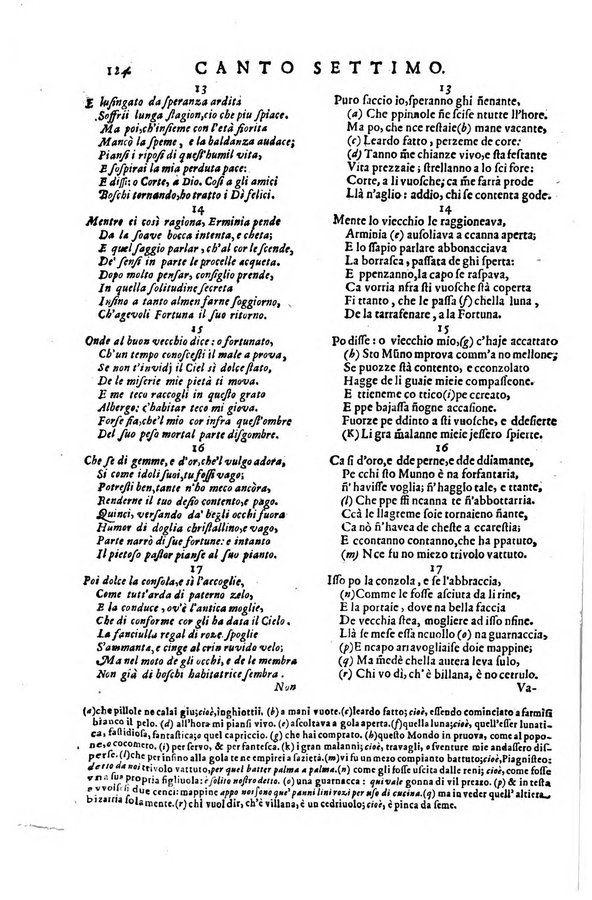 124 CANTO SETTIMO.
13
E lusingato da speranza ardita
Soffrii lunga stagion, ciò che piu spiace.
Ma poi, ch'insieme con l'età fiorita
Mancò la speme, e la baldanza audace;
Piansi i riposi di quest'humil vita,
E sospirai la mia perduta pace:
E dissi: o Corte, a Dio. Così a gli amici
Boschi tornando, ho tratto i Dì felici.
14
Mentre ei così ragiona, Erminia pende
Da la soave bocca intenta, e cheta;
E quel saggio parlar, ch'al cor le scende,
De' sensi in parte le procelle acqueta.
Dopo molto pensar, consiglio prende,
In quella solitudine secreta
Insino a tanto almen farne soggiorno,
Ch'agevoli Fortuna il suo ritorno.
15
Onde al buon vecchio dice: o fortunato,
Ch'un tempo conoscesti il male a prova,
Se non t'invidj il Ciel sì dolce stato,
De le miserie mie pietà ti mova.
E me teco raccogli in questo grato
Albergo; c'habitar teco mi giova.
Forse fia, che'l mio cor infra quest'ombre
Del suo peso mortal parte disgombre.
16
Che se di gemme, e d'or, che'l vulgo adora,
Sì come idoli suoi, tu fossi vago;
Potresti ben, tante n'ho meco ancòra,
Renderne il tuo desio contento, e pago.
Quinci, versando da' begli occhi fuora
Humor di doglia christallino, e vago,
Parte narrò di sue fortune: e intanto
Il pietoso pastor pianse al suo pianto.
17
Poi dolce la consola, e sì l'accoglie,
Come tutt'arda di paterno zelo,
E la conduce, ov'è l'antica moglie,
Che di conforme cor gli ha data il Cielo.
La fanciulla regal di roze spoglie
S'ammanta, e cinge al crin ruvido velo;
Ma nel moto de gli occhi, e de le membra
Non già di boschi habitatrice sembra.
Non
13
Puro faccio io, speranno ghi ñenante,
(a) Che ppinnole ñe scise ntutte ll'hore.
Ma po, che nce restaie (b) mane vacante,
(c) Leardo fatto, perzeme de core:
(d) Tanno m̃e chianze vivo, e sta festante
Vita prezzaie; strellanno a lo sio fattore:
Corte, a li vuosche; ca m̃e farrà prode
Llà n'aglio: addio, chi se contenta gode.
14
Mente lo viecchio le raggioneava,
Arminia (e) ausoliava a ccanna aperta;
E lo ssapio parlare abbonacciava
La borrasca, passata de ghi sperta:
E ppenzanno, la capo se raspava,
Ca vorria nfra sti vuosche stà coperta
Fi ttanto, che le pass (f) chella luna,
De la tarrafenare, a la Fortuna.
15
Po disse: o viecchio mio, (g) c'haje accattato
(h) Sto Mũno mprova comm'a no mellone;
Se puozze stà contento, e cconzolato
Hagge de li guaie mieie compassione.
E ttieneme co ttico (i) pe ccreato,
E ppe bajassa ñogne accasione.
Fuorze pe ddinto a sti vuosche, e ddesierte
(K) Li gra m̃alanne mieie jessero spierte.
16
Ca si d'oro, e dde perne, e dde ddiamante,
Pe cchi sto Munno è na forfantaria,
ñ' havisse voglia; ñ'hagglo tale, e ttante,
(l) Che ppe ssi ñcanna te n'abbottarria.
Ccà le llagreme soie tornaieno ñante,
Ca nò ñ'havea de cheste a ccarestia;
E ccontanno ccontanno, che ha ppatuto,
(m) Nce fu no miezo trivolo vattuto.
17
Isso po la conzola, e se l'abbraccia,
(n) Comme le fosse asciuta da li rine,
E la portaie, dov'na bella faccia
De vecchia stea, mogliere ad isso nfine.
Llà se mese essa ncuollo (o) na guarnaccia,
(p) E ncapo arravogliaise doie mappine;
(q) Ma m̃edè chella autera leva sulo,
(r) Chi vo dì, ch'è billana, è no cetrulo.
Va-
(a) che pillole ne calai giu; cioè, inghiottii. (b) a mani vuote. (c) leardo fatto; cioè, essendo cominciato a farmisi
bianco il pelo. (d) all'hora mi piansi vivo. (e) ascoltava a gola aperta. (f) quella luna; cioè, quell'esser lunati-
ca, fastidiosa, fantastica; o quel capriccio. (g) che hai comprato. (h) questo Mondo in pruova, come al popo-
ne, o cocomero. (i) per servo, & per fantesca. (k) i gran malanni; cioè, travagli, o sventure mie andassero disper-
perse. (l) che per infino alla gola te ne empirai a sazietà. (m) vi fu un mezo compianto battuto; cioè, Piagnisteo:
detto da noi trivolo vattuto, per quel batter palma a palma. (n) come gli fosse uscita dalle reni; cioè, come fosse
una sua propria figliuola: è solito nostro detto. (o) una guarnaccia: quivale gonna di vil prezzo. (p) & in testa
s'avvolse di due cenci: mappine appo noi sono que' panni lini rozi per uso di cucina. (q) ma in veder quell' altiera
bizarria solamente. (r) chi vuol dir, ch'è villana, è un cedriuolo; cioè, è pinca da seme.